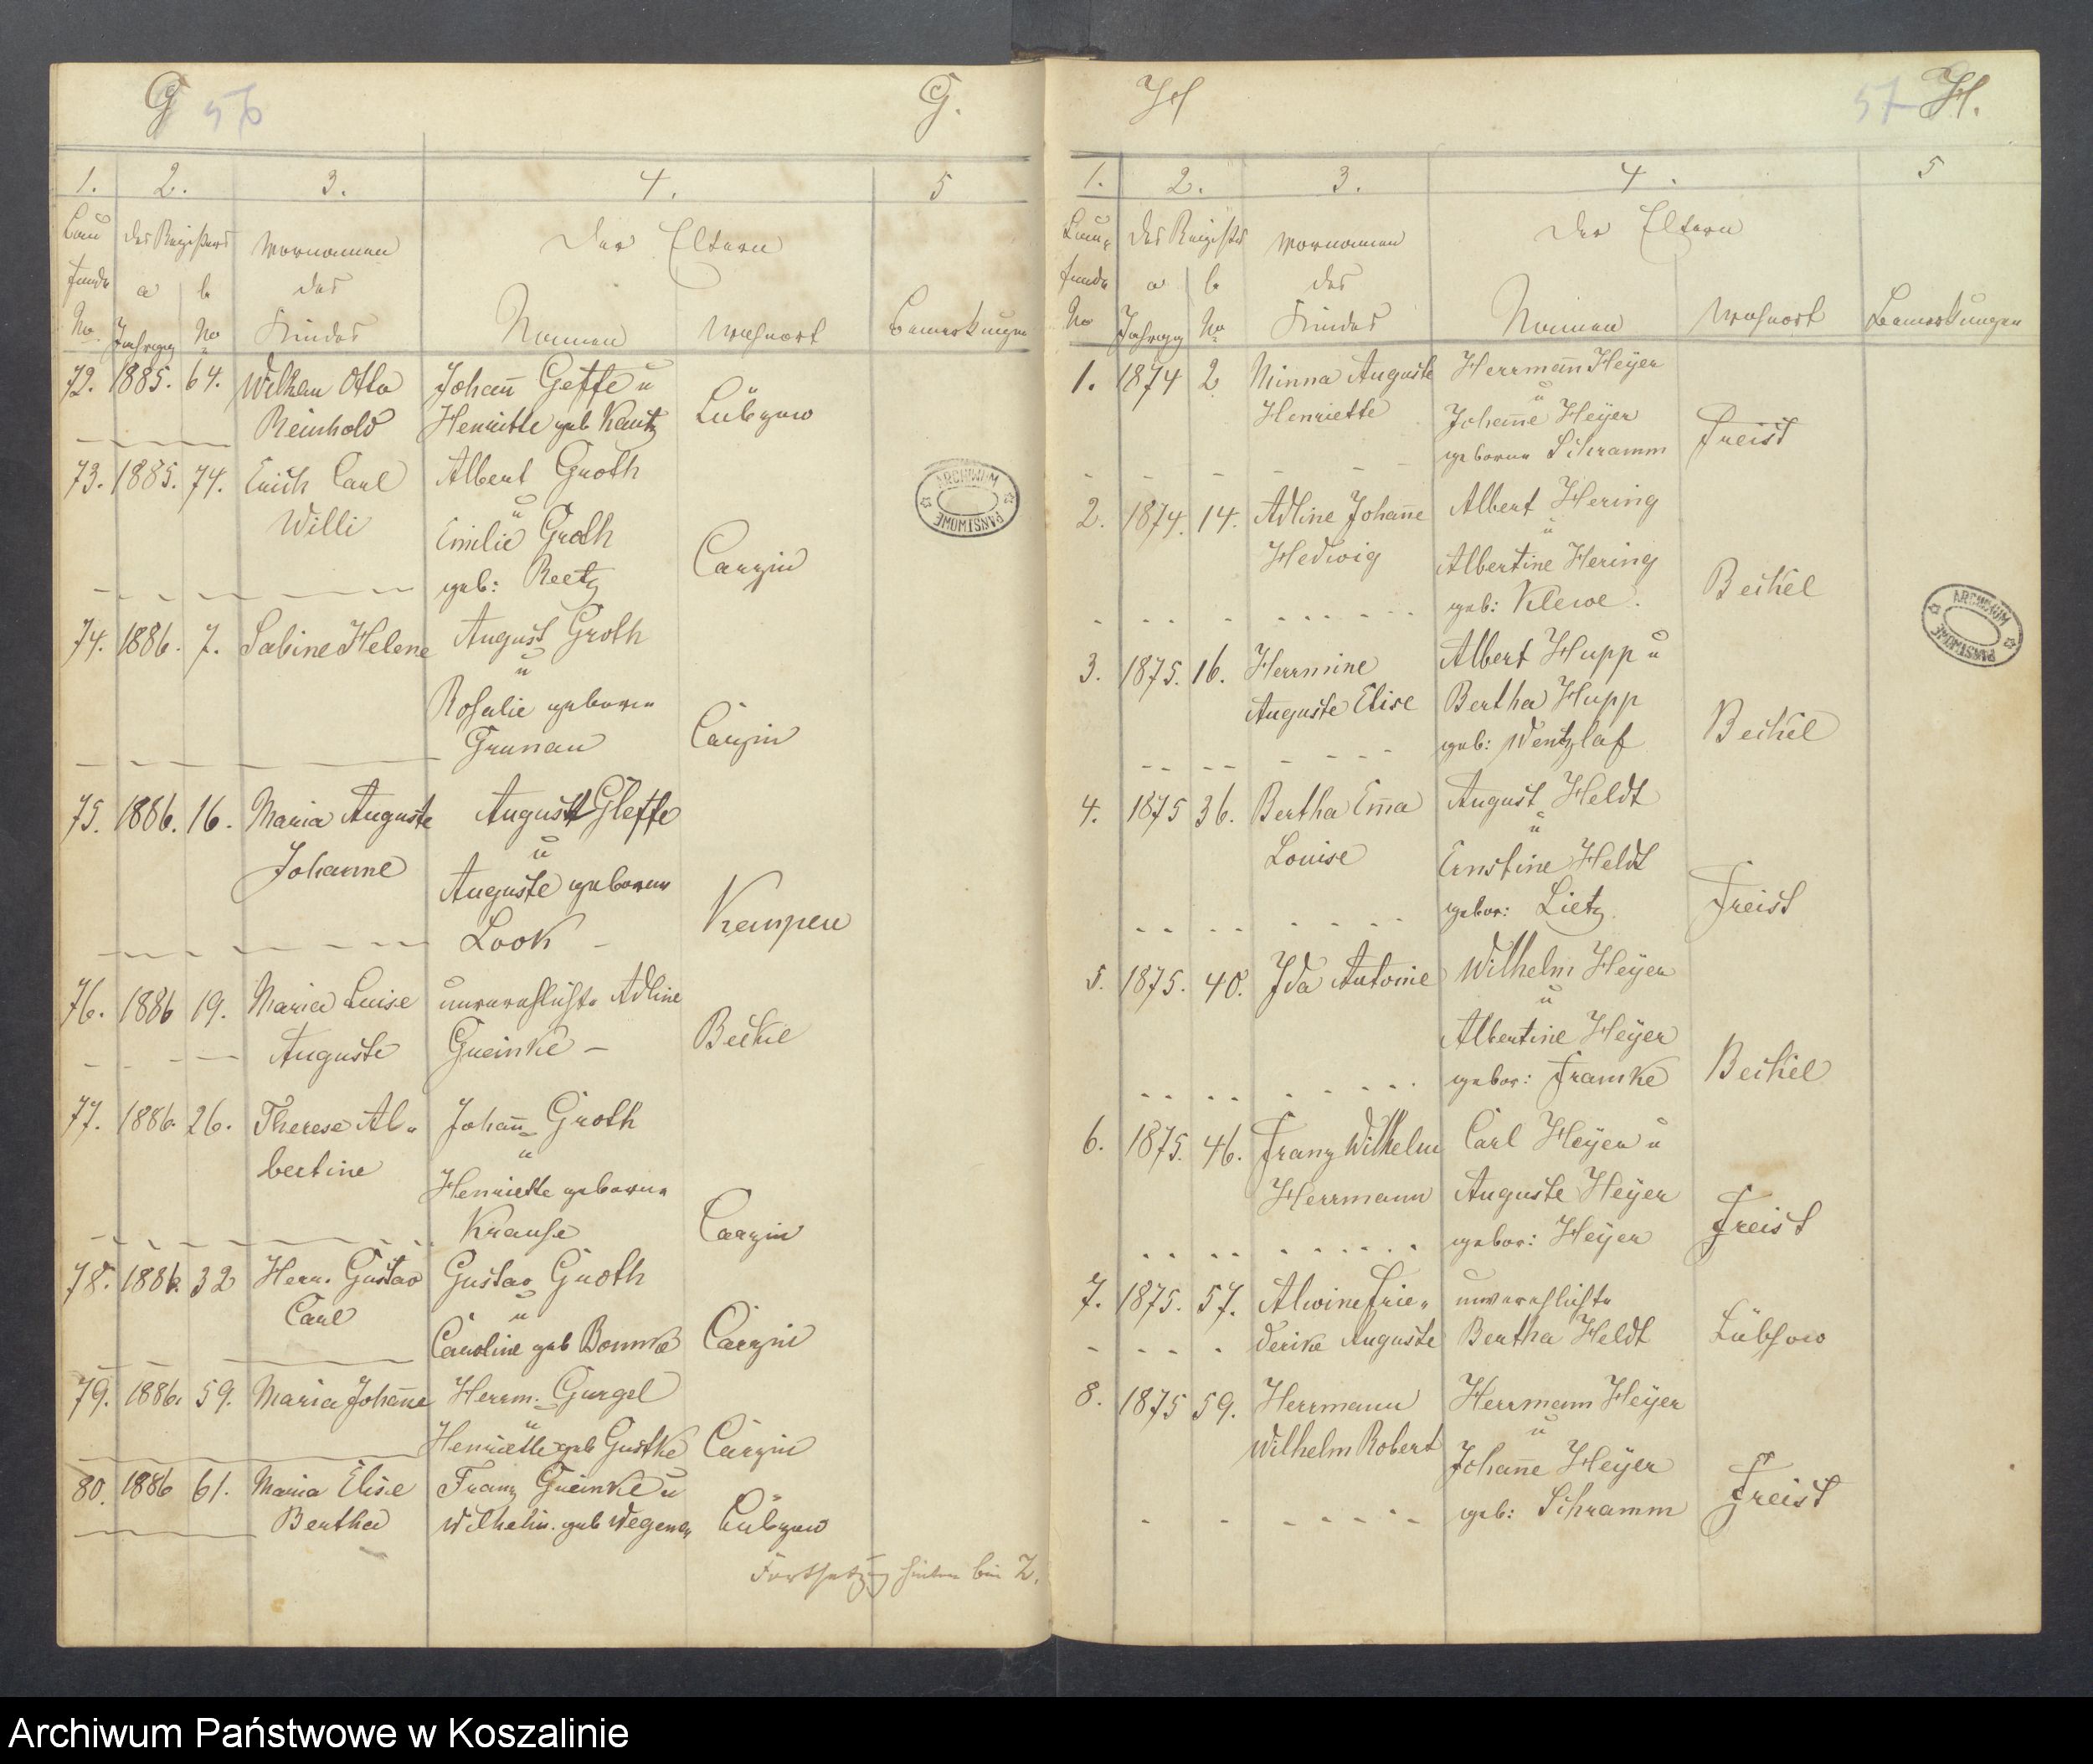 G 56 G.
1. 2. 3. 4. 5
Lau des Registers Vornamen Der Eltern
fende a b des
No Jahrgg No Kindes Namen Wohnort Bemerkungen
72. 1885. 64. Wilhelm Otto Johan̅ Geffe u
Reinhold Henriette geb Kautz Lübzow
73. 1885. 74. Erich Carl Albert Groth
Willi u
Emilie Groth
geb: Reetz Carzin
74. 1886. 7. Sabine Helene August Groth
u
Rosalie geborene
Grunau Carzin
75. 1886. 16. Maria Auguste August Gleffe
Johanne u
Auguste geborene
Look - Kempen
76. 1886 19. Maria Luise unverehlichte Adline
Auguste Greinke - Beckel
77. 1886. 26. Therese Al- Johan̅ Groth
bertine u
Henriette geborene
Krause Carzin
78. 1886. 32 Herm. Gustav Gustav Groth
Carl u
Caroline geb Bonnke Carzin
79. 1886. 59. Maria Johan̅e Herrm. Gurgel
u
Henriette geb Gustke Carzin
80. 1886 61. Maria Elise Franz Greinke u
Bertha Wilhelm. geb Wegener Lübzow
Fortsetzung hinten bei Z.
H 57 H.
1. 2. 3. 4. 5
Lau- des Registers Vornamen Der Eltern
fende a b des
No Jahrgg No Kindes Namen Wohnort Bemerkungen
1. 1874 2 Minna Auguste Herrman̅ Heyer
u
Henriette Johan̅e Heyer
geborene Schramm Freist
2. 1874. 14. Adline Johan̅e Albert Hering
u
Hedwig Albertine Hering
geb: Klewe. Beckel
3. 1875. 16. Herrmine Albert Hupp u
Auguste Elise Bertha Hupp
geb: Wentzlaf Beckel
4. 1875 36. Bertha Em̅a August Heldt
u
Louise Ernstine Heldt
gebor: Lietz Freist
5. 1875. 40. Ida Antonie Wilhelm Heyer
u
Albertine Heyer
gebor: Framke Beckel
6. 1875. 46. Franz Wilhelm Carl Heyer u
Herrmann Auguste Heyer
gebor: Heyer Freist
7. 1875. 57. Alwine Frie- unverehlichte
derike Auguste Bertha Heldt Lübsow
8. 1875 59. Herrmann Herrmann Heyer
u
Wilhelm Robert Johan̅e Heyer
geb: Schramm Freist
ARCHIWUM PAŃSTWOWE
ARCHIWUM PAŃSTWOWE
Archiwum Państwowe w Koszalinie